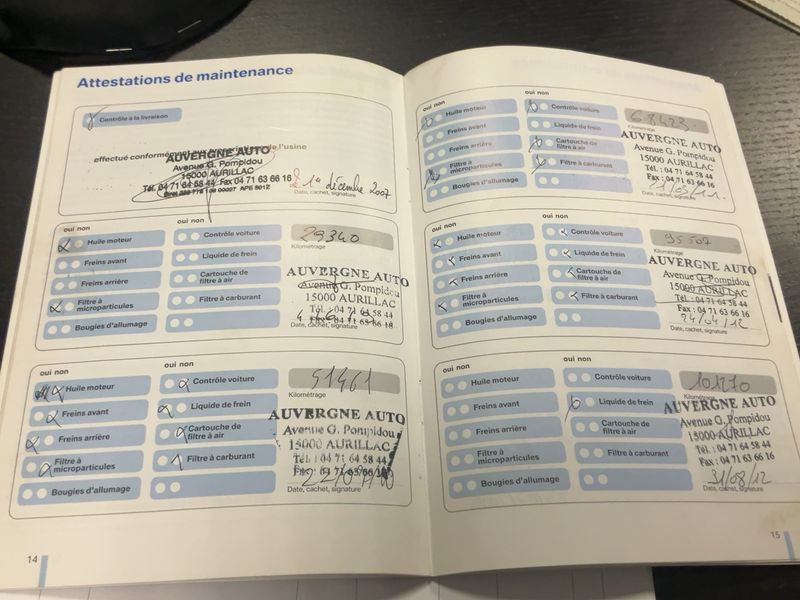 Attestations de maintenance
Contrôle à la livraison
effectué conformément aux
de l'usine
AUVERGNE AUTO
Avenue G. Pompidou
15000 AURILLAC
Tél. 04 71 64 58 44 Fax 04 71 63 66 16
1er décembre 2007
Date, cachet, signature
oui non
oui non
Huile moteur
Contrôle voiture
29340
Kilométrage
Freins avant
Liquide de frein
Freins arrière
Cartouche de filtre à air
Filtre à microparticules
Filtre à carburant
Bougies d'allumage
AUVERGNE AUTO
Avenue G. Pompidou
15000 AURILLAC
Tél. : 04 71 64 58 44
Date, cachet, signature
oui non
oui non
Huile moteur
Contrôle voiture
51461
Kilométrage
Freins avant
Liquide de frein
Freins arrière
Cartouche de filtre à air
Filtre à microparticules
Filtre à carburant
Bougies d'allumage
AUVERGNE AUTO
Avenue G. Pompidou
15000 AURILLAC
Tél. : 04 71 64 58 44
Fax : 04 71 63 66 16
Date, cachet, signature
14
oui non
oui non
Huile moteur
Contrôle voiture
68423
Kilométrage
Freins avant
Liquide de frein
Freins arrière
Cartouche de filtre à air
Filtre à microparticules
Filtre à carburant
Bougies d'allumage
AUVERGNE AUTO
Avenue G. Pompidou
15000 AURILLAC
Tél. : 04 71 64 58 44
Fax : 04 71 63 66 16
Date, cachet, signature
oui non
oui non
Huile moteur
Contrôle voiture
95507
Kilométrage
Freins avant
Liquide de frein
Freins arrière
Cartouche de filtre à air
Filtre à microparticules
Filtre à carburant
Bougies d'allumage
AUVERGNE AUTO
Avenue G. Pompidou
15000 AURILLAC
Tél. : 04 71 64 58 44
Fax : 04 71 63 66 16
24/04/12
Date, cachet, signature
oui non
oui non
Huile moteur
Contrôle voiture
101270
Kilométrage
Freins avant
Liquide de frein
Freins arrière
Cartouche de filtre à air
Filtre à microparticules
Filtre à carburant
Bougies d'allumage
AUVERGNE AUTO
Avenue G. Pompidou
15000 AURILLAC
Tél. : 04 71 64 58 44
Fax : 04 71 63 66 16
31/08/12
Date, cachet, signature
15